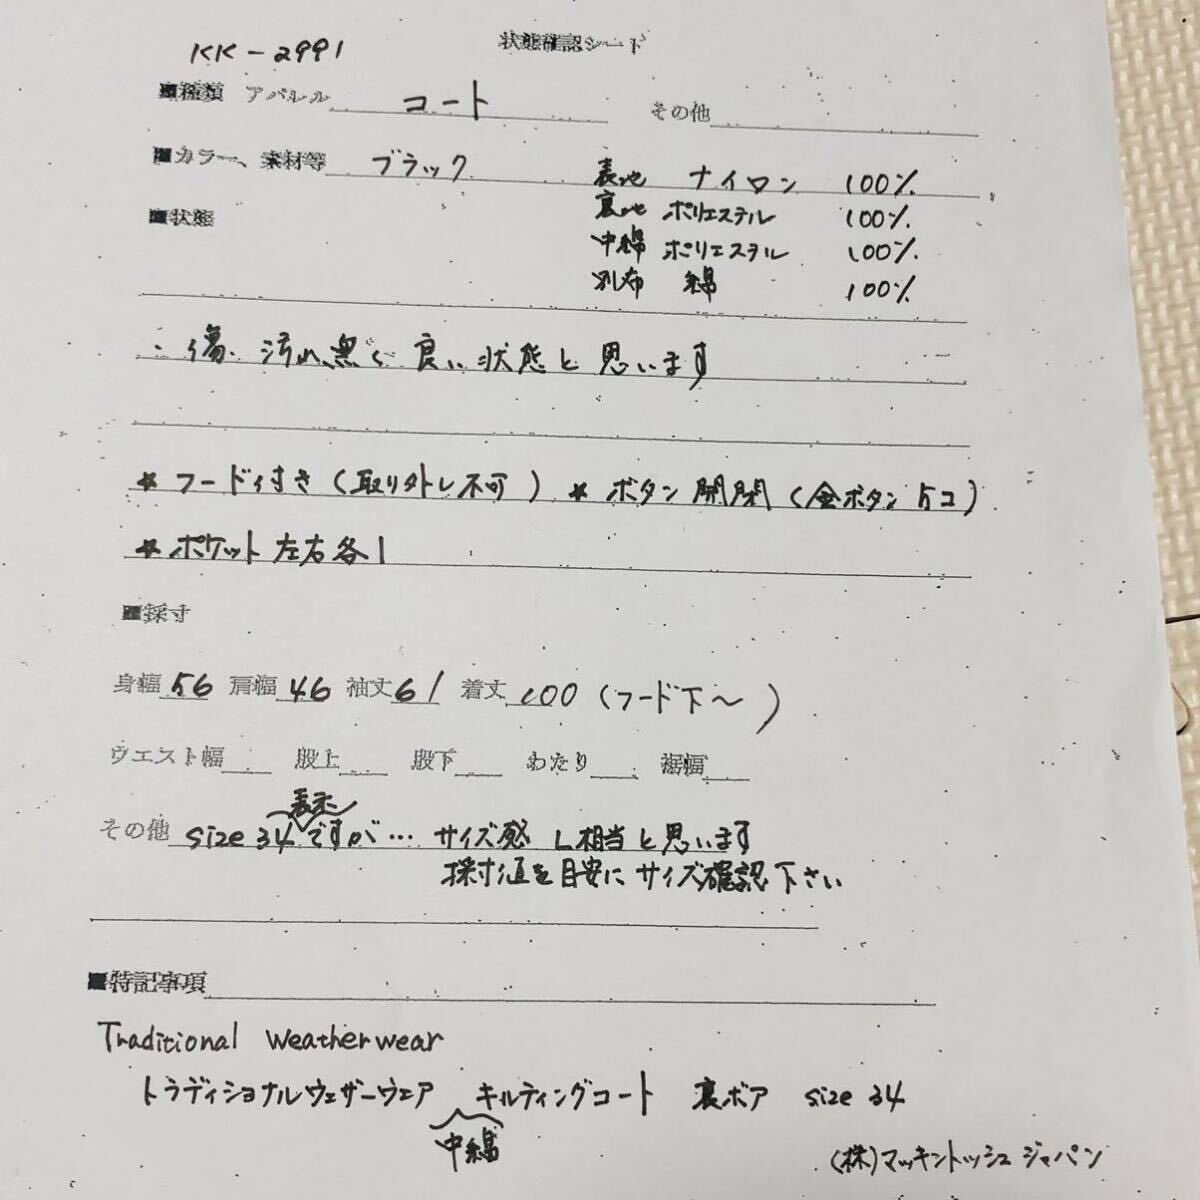 KK-2991
状態確認シート
■種類 アパレル コート その他
■カラー、素材等 ブラック 表地 ナイロン 100%
裏地 ポリエステル 100%
■状態
中綿 ポリエステル 100%
別布 綿 100%
・傷、汚れ、無く 良い状態と思います
* フード付き(取り外し不可) * ボタン開閉(金ボタン5コ)
* ポケット左右各1
■採寸
身幅 56 肩幅 46 袖丈 61 着丈 100 (フード下〜)
ウエスト幅 股上 股下 わたり 裾幅
表示
その他 size 34 ですが… サイズ感 L相当と思います
採寸値を目安にサイズ確認下さい
■特記事項
Traditional Weatherwear
トラディショナルウェザーウェア キルティングコート 裏ボア size 34
中綿
(株)マッキントッシュジャパン